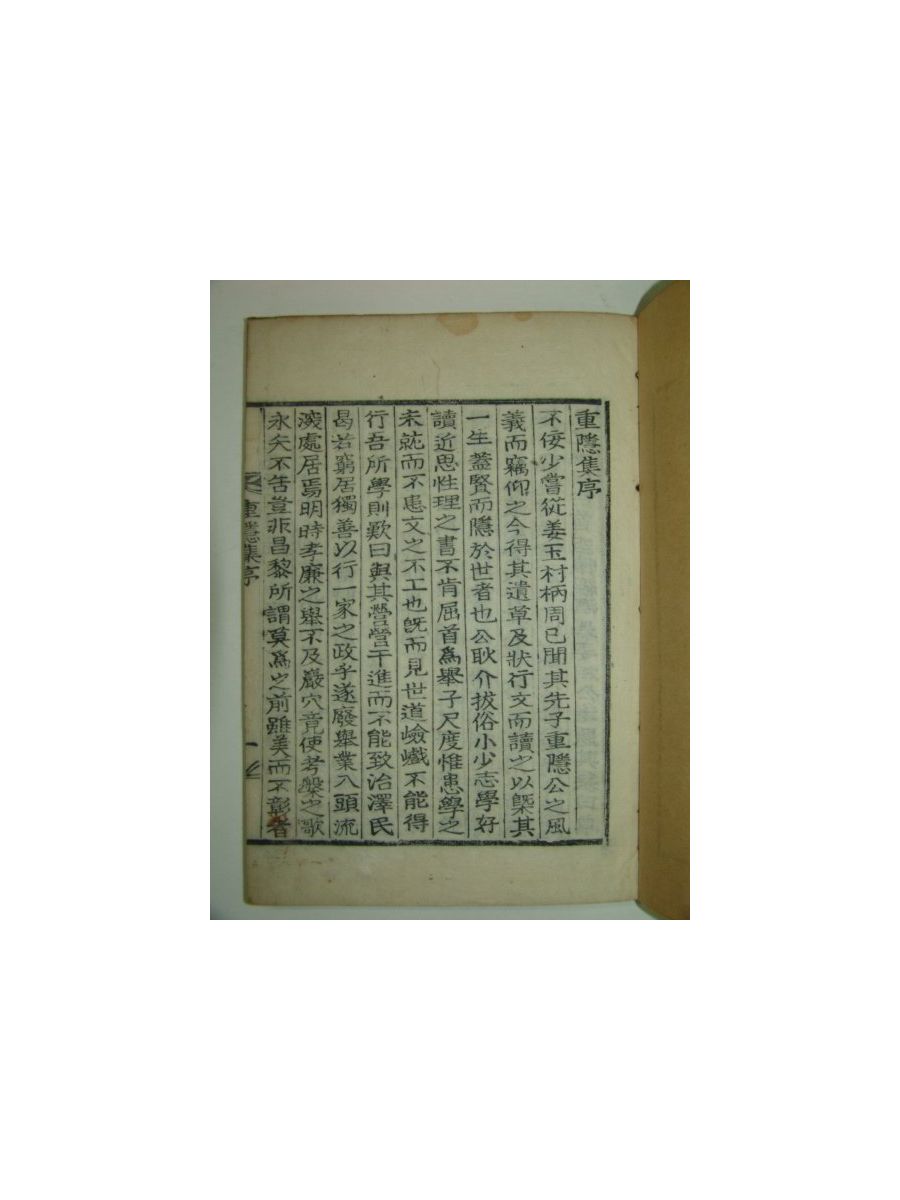 重隱集序
不佞少嘗從姜玉村柄周已聞其先子重隱公之風
義而竊仰之今得其遺草及狀行文而讀之以槩其
一生蓋賢而隱於世者也公耿介拔俗小少志學好
讀近思性理之書不肯屈首爲擧子尺度惟患學之
未就而不患文之不工也旣而見世道嶮巇不能得
行吾所學則歎曰與其營營干進而不能致治澤民
曷若窮居獨善以行一家之政乎遂廢擧業入頭流
深處居焉明時孝廉之擧不及巖穴竟使考槃之歌
永矢不告豈非昌黎所謂莫爲之前雖美而不彰者
重隱集序
一